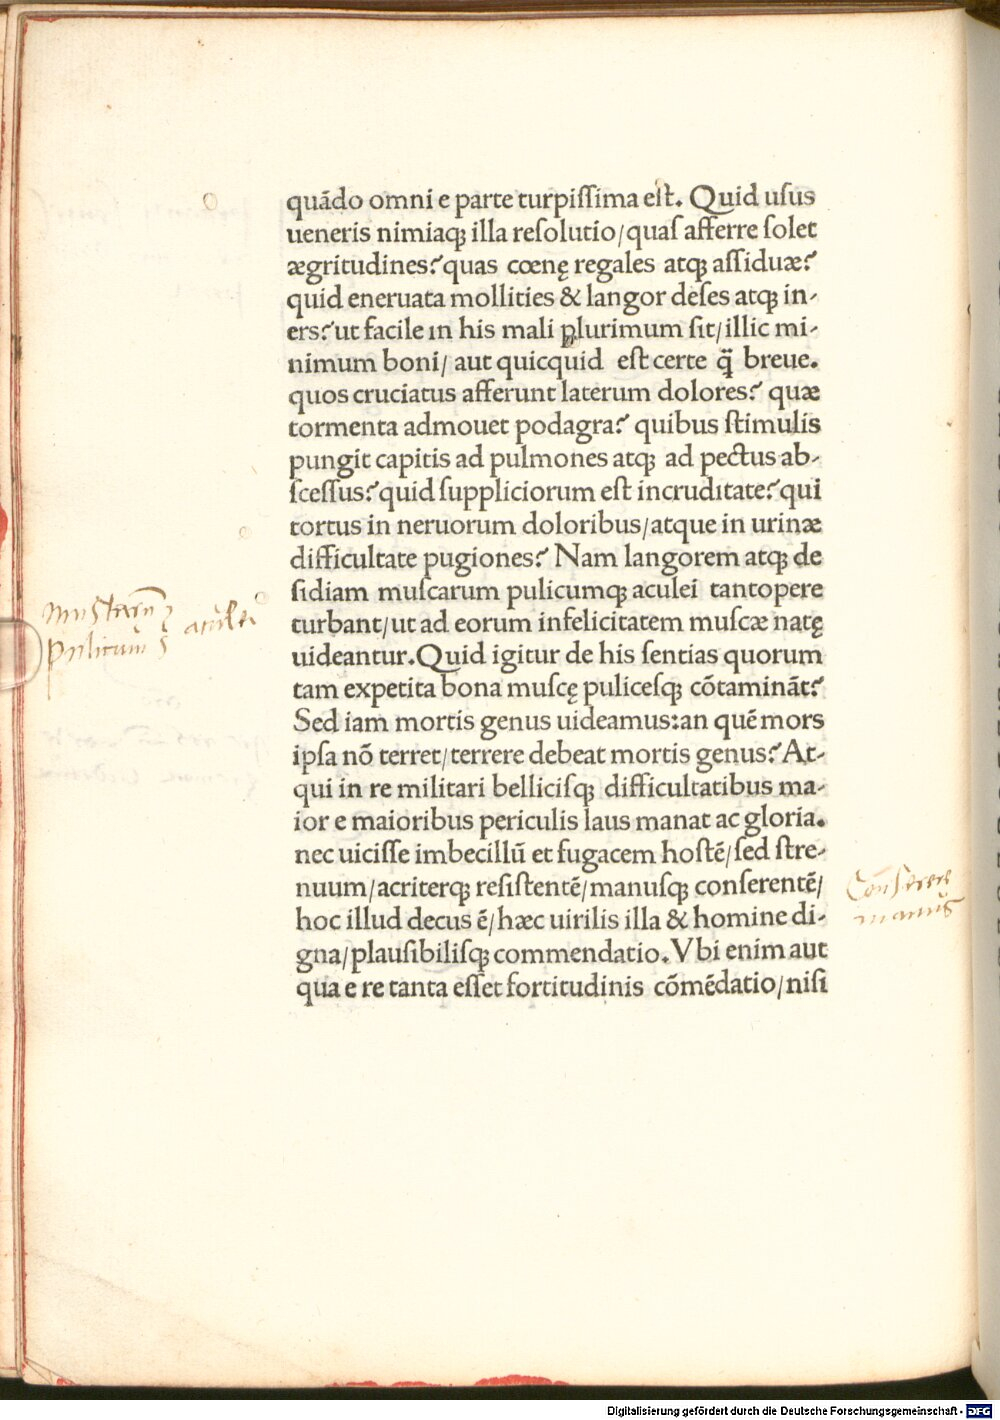 quãdo omni e parte turpiſſima eſt. Quid uſus
ueneris nimiaqꝫ illa reſolutio/quaſ afferre ſolet
ægritudines? quas cœnę regales atqꝫ aſſiduæ?
quid eneruata mollities & langor deſes atqꝫ in-
ers? ut facile in his mali plurimum ſit/illic mi-
nimum boni/ aut quicquid eſt certe q̃ breue.
quos cruciatus afferunt laterum dolores? quæ
tormenta admouet podagra? quibus ſtimulis
pungit capitis ad pulmones atqꝫ ad pectus ab-
ſceſſus? quid ſuppliciorum eſt incruditate? qui
tortus in neruorum doloribus/atque in urinæ
difficultate pugiones? Nam langorem atqꝫ de
ſidiam muſcarum pulicumqꝫ aculei tantopere
turbant/ut ad eorum infelicitatem muſcæ natę
uideantur. Quid igitur de his ſentias quorum
tam expetita bona muſcę puliceſqꝫ cõtaminãt?
Sed iam mortis genus uideamus:an quẽ mors
ipſa nõ terret/terrere debeat mortis genus? At-
qui in re militari belliciſqꝫ difficultatibus ma-
ior e maioribus periculis laus manat ac gloria.
nec uiciſſe imbecillũ et fugacem hoſtẽ/ſed ſtre-
nuum/acriterqꝫ reſiſtentẽ/manuſqꝫ conſerentẽ/
hoc illud decus ẽ/hæc uirilis illa & homine di-
gna/plauſibiliſqꝫ commendatio. Vbi enim aut
qua e re tanta eſſet fortitudinis cõmẽdatio/niſi
aculei
Conſerere
manus
Digitalisierung gefördert durch die Deutsche Forschungsgemeinschaft - DFG